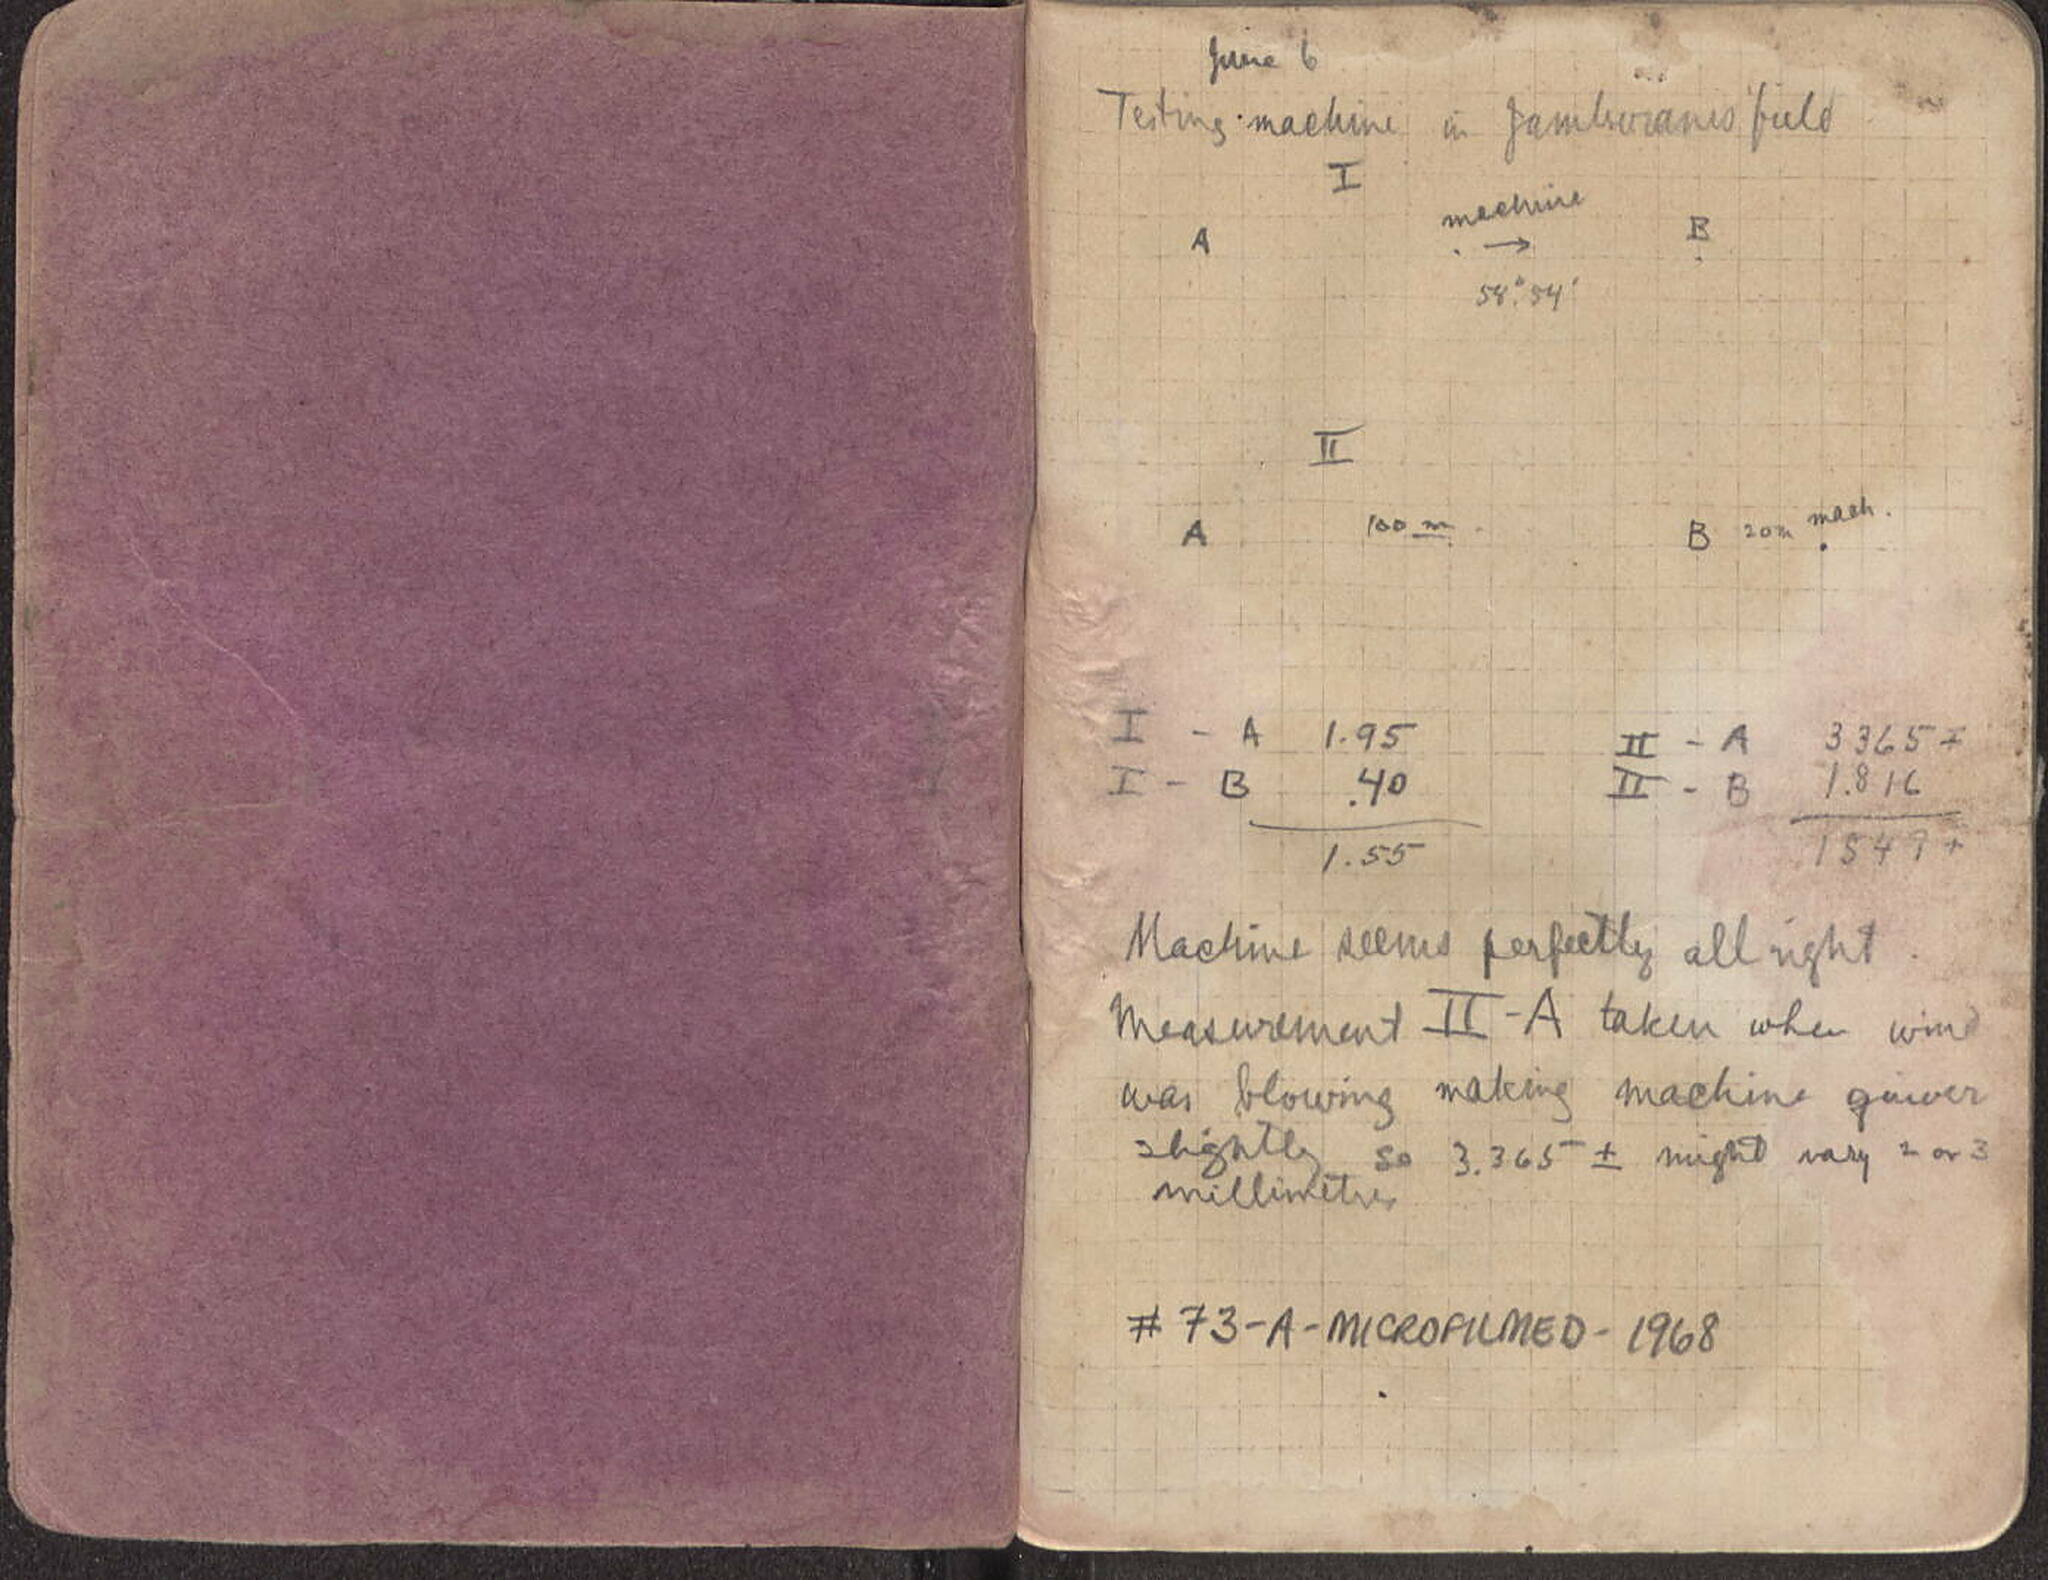 June 6
Testing machine in field
I
machine
A . → B
58° 54'
II
A 100 m B 20m mach.
I - A 1.95 II - A 3365 ±
I - B .40 II - B 1.816
1.55 1549 +
Machine seems perfectly all right.
Measurement II-A taken when wind
was blowing making machine quiver
slightly so 3.365 ± might vary 2 or 3
millimetres
# 73-A-MICROFILMED-1968